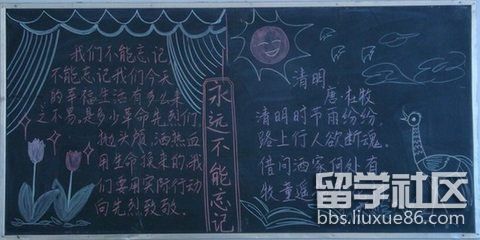 我们不能忘记
不能忘记我们今天
的幸福生活有多么来
之不易,是多少革命先烈们
抛头颅、洒热血
用生命换来的,我
们要用实际行动
向先烈致敬。
永远不能忘记
清明
唐·杜牧
清明时节雨纷纷,
路上行人欲断魂。
借问酒家何处有
牧童遥
留学社区
bbs.liuxue86.com